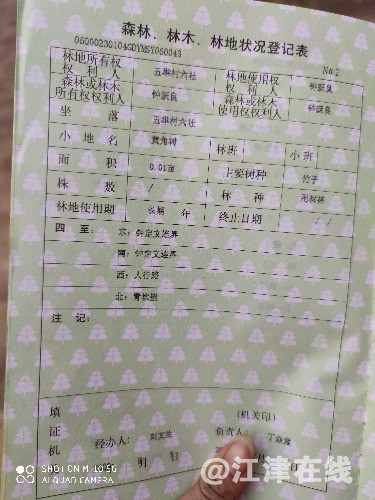 森林、林木、林地状况登记表
No 2
林地所有权权利人 五举村六社 林地使用权权利人 钟跃良
森林或林木所有权权利人 钟跃良 森林或林木使用权权利人 钟跃良
坐落 五举村六社
小地名 黄角树 林班 小班
面积 0.01亩 主要树种 竹子
株数 / 林种 用材林
林地使用期 长期 年 终止日期 /
四至: 东:钟定文连界
南:钟定文连界
西:人行路
北:
注记:
填证机 (机关印)
经办人: 刘文生 负责人:
SHOT ON MI 10 5G
AI QUAD CAMERA
@江津在线